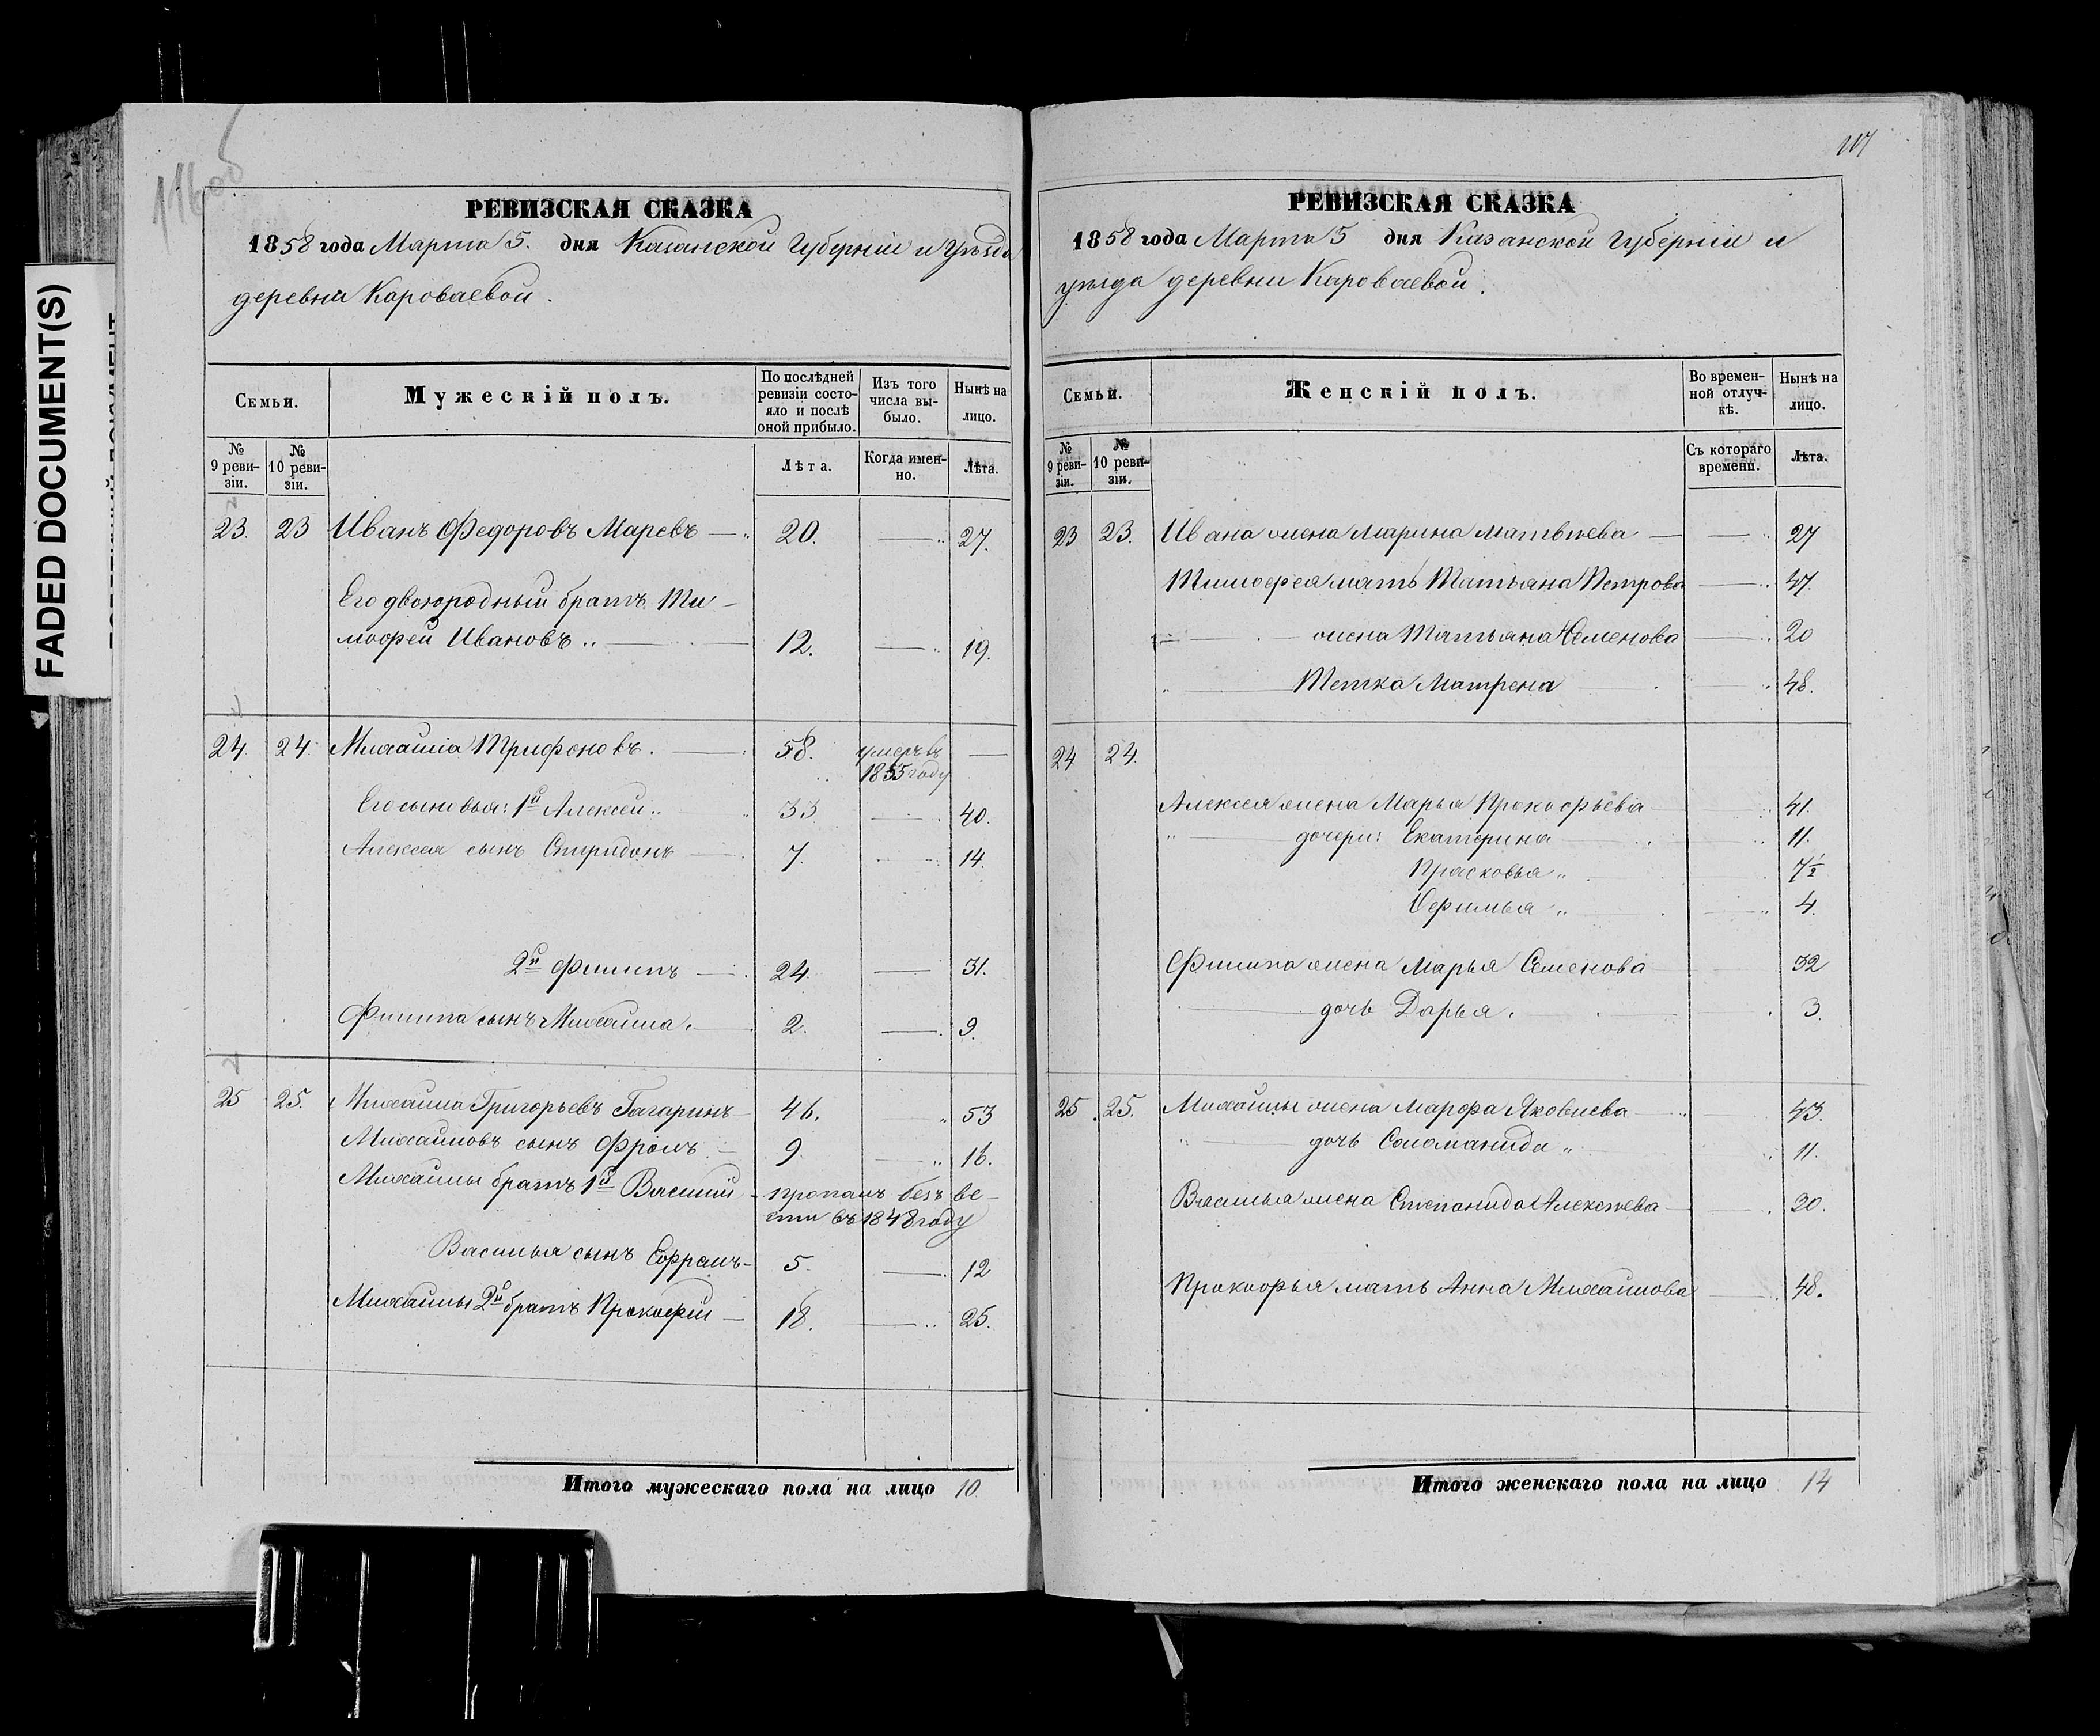 FADED DOCUMENT(S)
116об
РЕВИЗСКАЯ СКАЗКА
1858 года Марта 5. дня Казанской Губернiи и Уѣзда
деревни Короваевой.
Семьи.
Мужескiй полъ.
По послѣдней ревизiи состояло и послѣ оной прибыло.
Изъ того числа выбыло.
Нынѣ на лицо.
№ 9 ревизiи.
№ 10 ревизiи.
Лѣта.
Когда именно.
Лѣта.
23. 23 Иванъ Федоровъ Маревъ — 20. — 27.
Его двоюродный братъ Ти-
мофей Ивановъ — 12. — 19.
24. 24. Михайла Трифоновъ. — 58. умеръ въ —
1855 году
Его сыновья: 1й Алексей 33. — 40.
Алексея сынъ Спиридонъ — 7. — 14.
2й Филипъ — 24. — 31.
Филипа сынъ Михайла. — 2. — 9.
25 25. Михайла Григорьевъ Гагаринъ 46. 53
Михайловъ сынъ Фролъ — 9 — 16.
Михайлы братъ 1й Василий - пропалъ безъ ве-
сти въ 1848 году
Василья сынъ Ефремъ - 5 — 12
Михайлы 2й братъ Прокофiй — 18. — 25.
Итого мужескаго пола на лицо 10.
117
РЕВИЗСКАЯ СКАЗКА
1858 года Марта 5 дня Казанской Губернiи и
уѣзда деревни Короваевой.
Семьи.
Женскiй полъ.
Во временной отлучкѣ.
Нынѣ на лицо.
№ 9 ревизiи.
№ 10 ревизiи.
Съ котораго времени.
Лѣта.
23 23. Ивана жена Марина Матвѣева — — 27
Тимофея мать Татьяна Петрова — 47.
— жена Татьяна Семенова — 20
— Тетка Матрена — 48.
24 24.
Алексея жена Марья Прокофьева 41.
" — дочери: Екатерина 11.
Прасковья " 7½
Офимья " 4.
Филипа жена Марья Семенова 32
— дочь Дарья. 3.
25 25. Михайлы жена Марфа Яковлева — 43.
" — дочь Соломанида " 11.
Василья жена Степанида Алексѣева — 30.
Прокофья мать Анна Михайлова — 48.
Итого женскаго пола на лицо 14